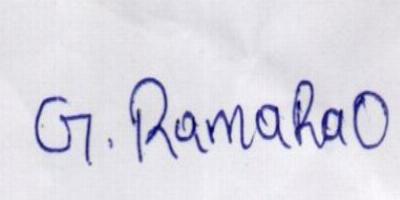 G. RamaRaO